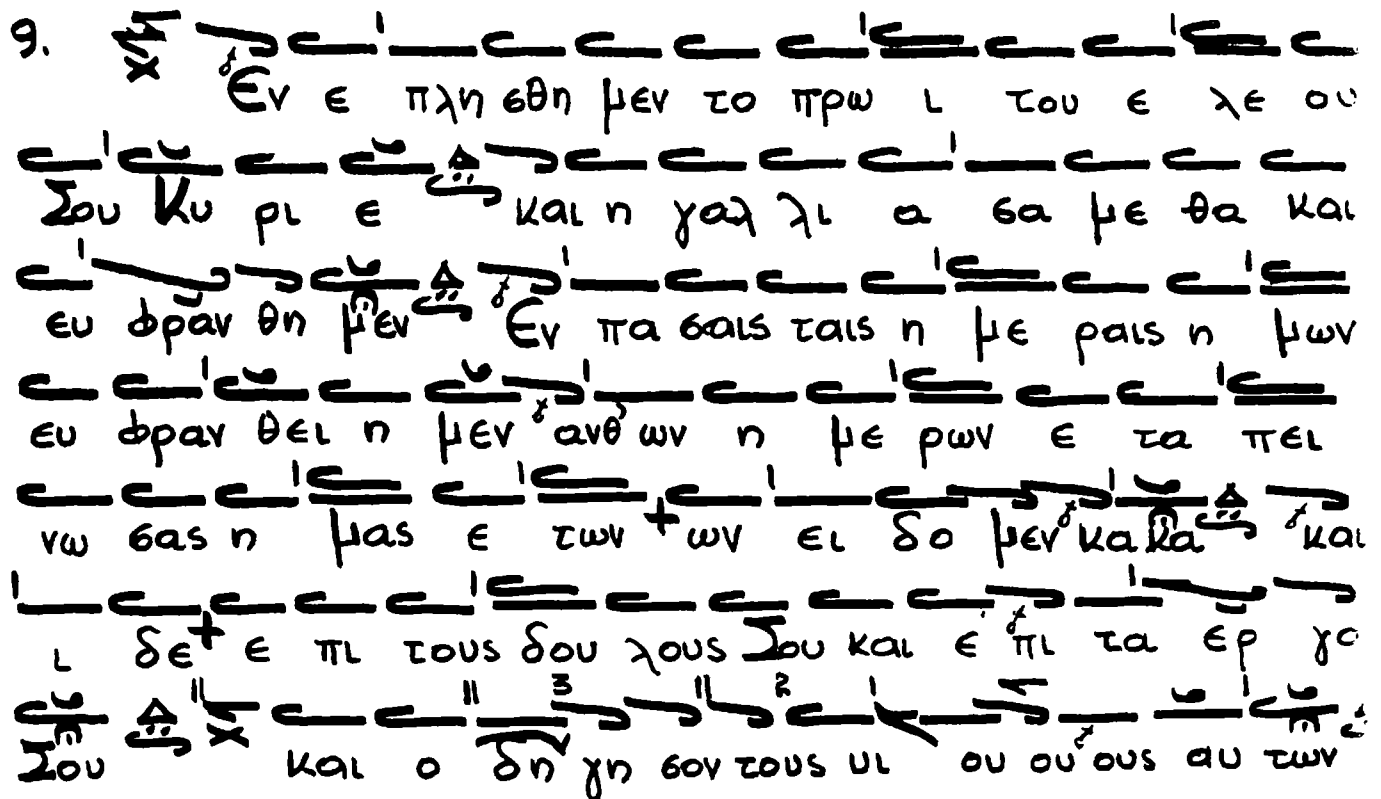 9. Εν ε πλη σθη μεν το πρω ι του ε λε ου
Σου Κυ ρι ε και η γαλ λι α σα με θα και
ευ φραν θη μεν Εν πα σαις ταις η με ραις η μων
ευ φραν θει η μεν ανθ' ων η με ρων ε τα πει
νω σας η μας ε των ων ει δο μεν κα κα και
ι δε ε πι τους δου λους Σου και ε πι τα ερ γα
Σου και ο δη γη σον τους υι ου ου ους αυ των